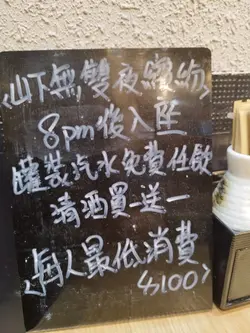 <山下無雙夜繽紛>
8pm後入座
罐裝汽水免費任飲
清酒買一送一
<每人最低消費
$100>